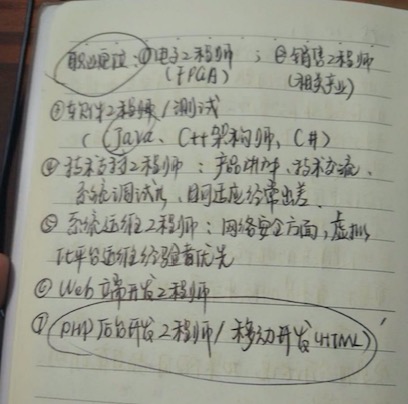 职业定位:①电子工程师 ; ②销售工程师
(FPGA) (相关产业)
③软件工程师/测试
(Java、C++架构师、C#)
④技术支持工程师:产品讲解、技术交流、
系统调试、且可适应经常出差.
⑤系统运维工程师:网络安全方面,虚拟
化平台运维经验者优先
⑥Web端开发工程师
⑦(PHP后台开发工程师/移动开发(HTML)